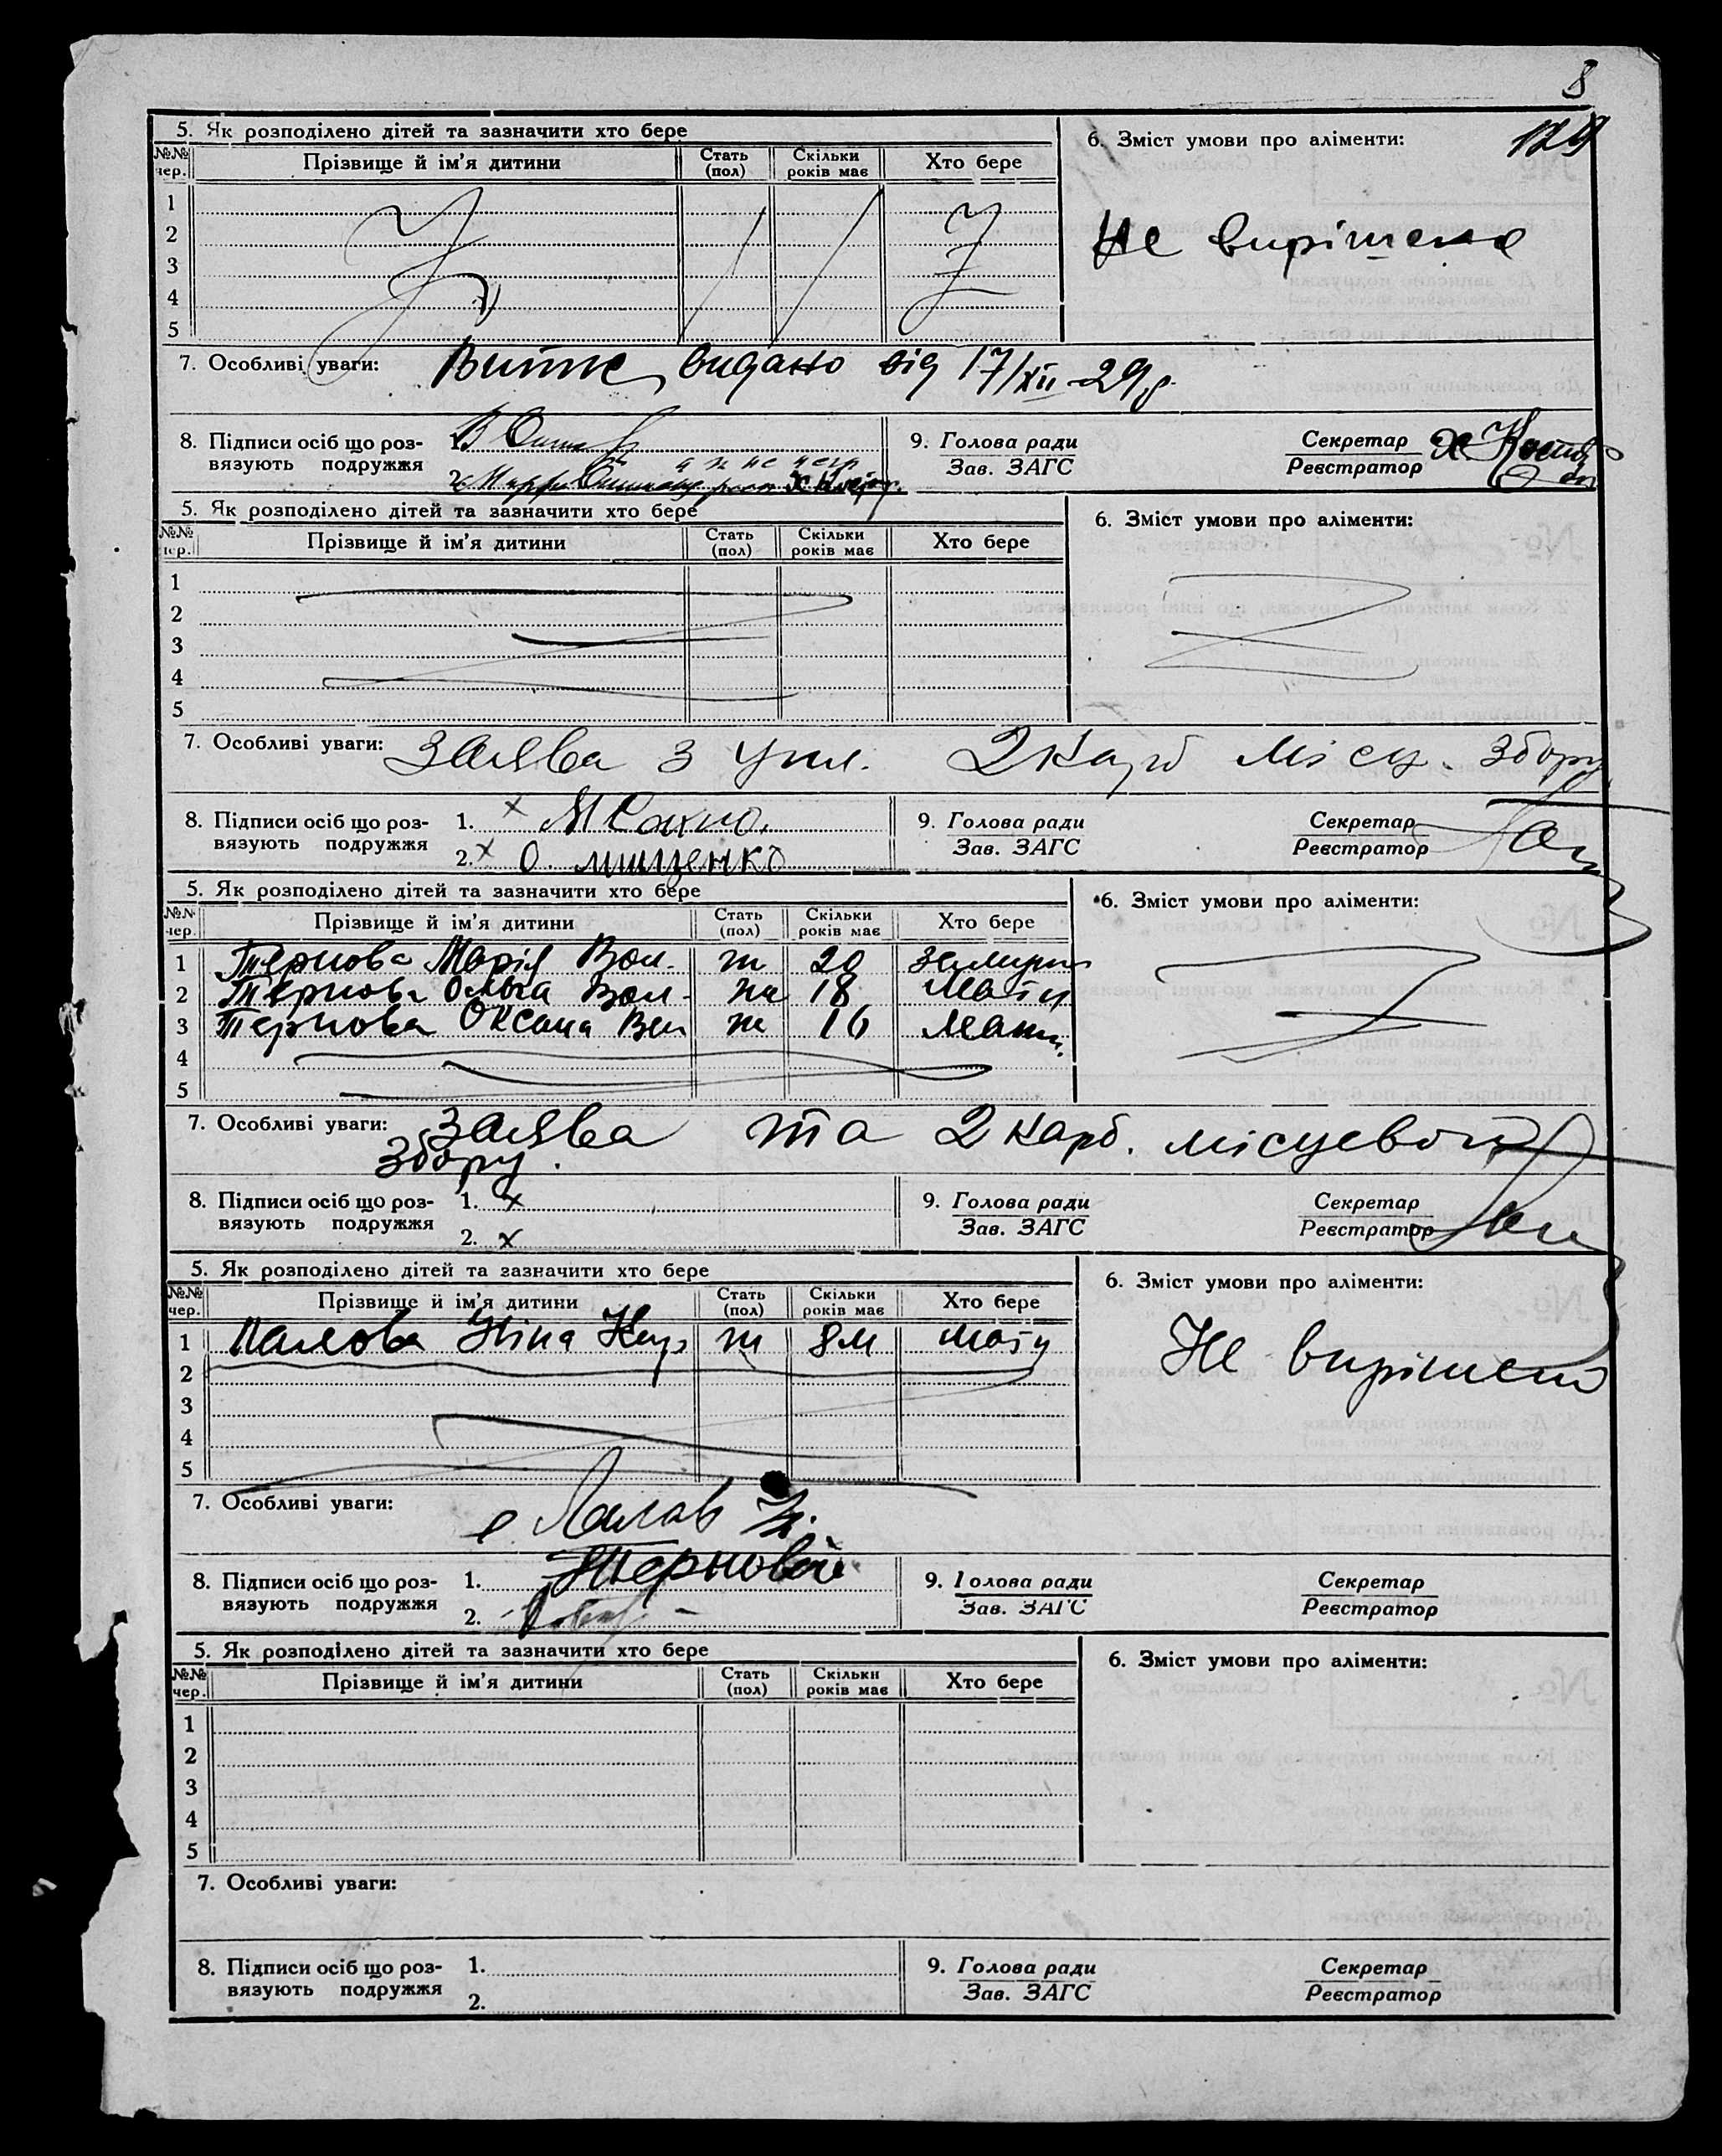 8
129
5. Як розподілено дітей та зазначити хто бере
6. Зміст умови про аліменти:
№№ чер. Прізвище й ім'я дитини Стать (пол) Скільки років має Хто бере
1
2
Не вирішено
3
4
5
7. Особливі уваги: видано від 17/XII-29р.
8. Підписи осіб що роз- 1. 9. Голова ради Секретар
вязують подружжя 2. Зав. ЗАГС Реєстратор
5. Як розподілено дітей та зазначити хто бере
6. Зміст умови про аліменти:
№№ чер. Прізвище й ім'я дитини Стать (пол) Скільки років має Хто бере
1
2
3
4
5
7. Особливі уваги: Заява з 2 карб місц. збору
8. Підписи осіб що роз- 1. х 9. Голова ради Секретар
вязують подружжя 2. х О. Мищенко Зав. ЗАГС Реєстратор
5. Як розподілено дітей та зазначити хто бере
6. Зміст умови про аліменти:
№№ чер. Прізвище й ім'я дитини Стать (пол) Скільки років має Хто бере
1 Тернова Марія ж 20
2 Тернова Ольга ж 18 Мати
3 Тернова Оксана ж 16 Мати
4
5
7. Особливі уваги: Заява та 2 карб. місцевого
збору.
8. Підписи осіб що роз- 1. х 9. Голова ради Секретар
вязують подружжя 2. х Зав. ЗАГС Реєстратор
5. Як розподілено дітей та зазначити хто бере
6. Зміст умови про аліменти:
№№ чер. Прізвище й ім'я дитини Стать (пол) Скільки років має Хто бере
1 Ніна ж 8м мати
2
Не вирішено
3
4
5
7. Особливі уваги:
8. Підписи осіб що роз- 1. 9. Голова ради Секретар
вязують подружжя 2. Зав. ЗАГС Реєстратор
5. Як розподілено дітей та зазначити хто бере
6. Зміст умови про аліменти:
№№ чер. Прізвище й ім'я дитини Стать (пол) Скільки років має Хто бере
1
2
3
4
5
7. Особливі уваги:
8. Підписи осіб що роз- 1. 9. Голова ради Секретар
вязують подружжя 2. Зав. ЗАГС Реєстратор